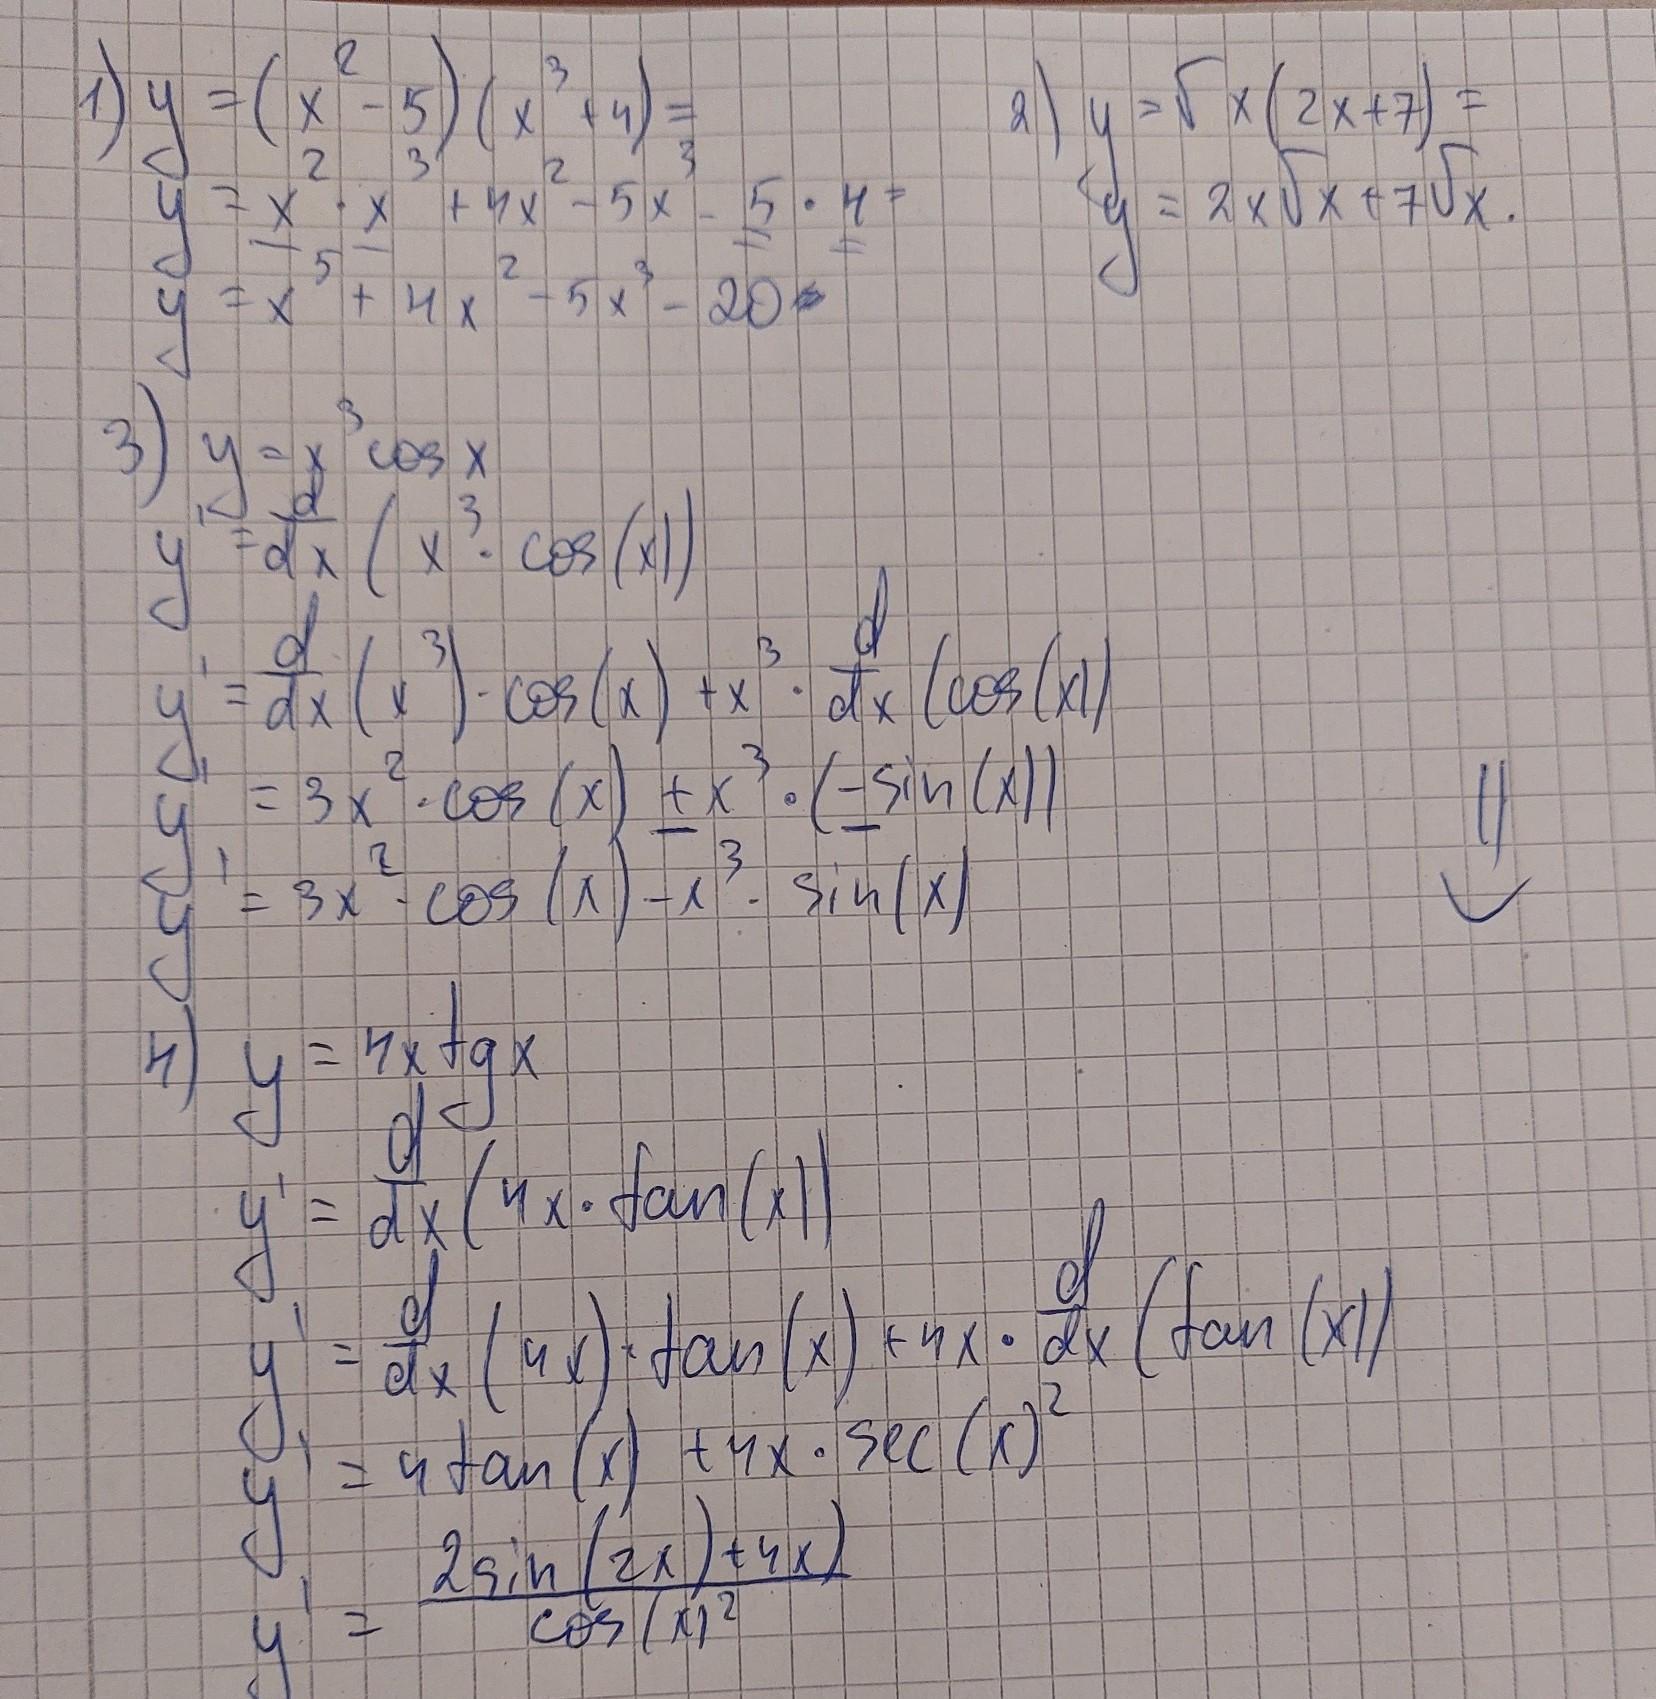 1) y = (x² - 5)(x³ + 4) =
y = x² · x³ + 4x² - 5x³ - 5 · 4 =
y = x⁵ + 4x² - 5x³ - 20
2) y = √x(2x+7) =
y = 2x√x + 7√x.
3) y = x³ cos x
y' = d/dx (x³ · cos(x))
y' = d/dx (x³) · cos(x) + x³ · d/dx (cos(x))
y' = 3x² · cos(x) + x³ · (-sin(x))
y' = 3x² · cos(x) - x³ · sin(x)
4) y = 4x tg x
y' = d/dx (4x · tan(x))
y' = d/dx (4x) · tan(x) + 4x · d/dx (tan(x))
y' = 4tan(x) + 4x · sec(x)²
y' = 2sin(2x)+4x) / cos(x)²